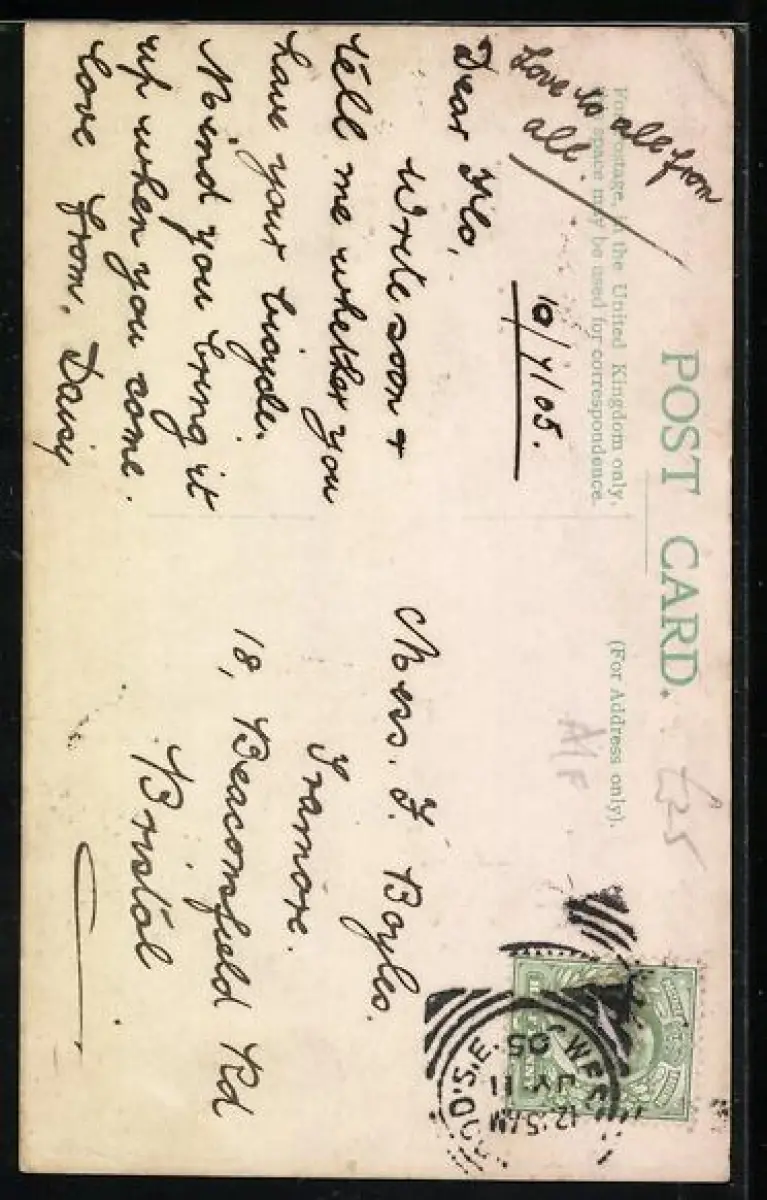 POST CARD.
For Postage, in the United Kingdom only,
space may be used for correspondence.
(For Address only).
Love to all from
all.
10/7/05.
Dear Flo,
Write soon &
tell me whether you
have your bicycle.
Mind you bring it
up when you come.
Love from, Daisy
Miss. F. Boyles.
Tramore.
18, Beaconsfield Rd
Bristol
£25
12.5AM
JY 11
05
S.E.